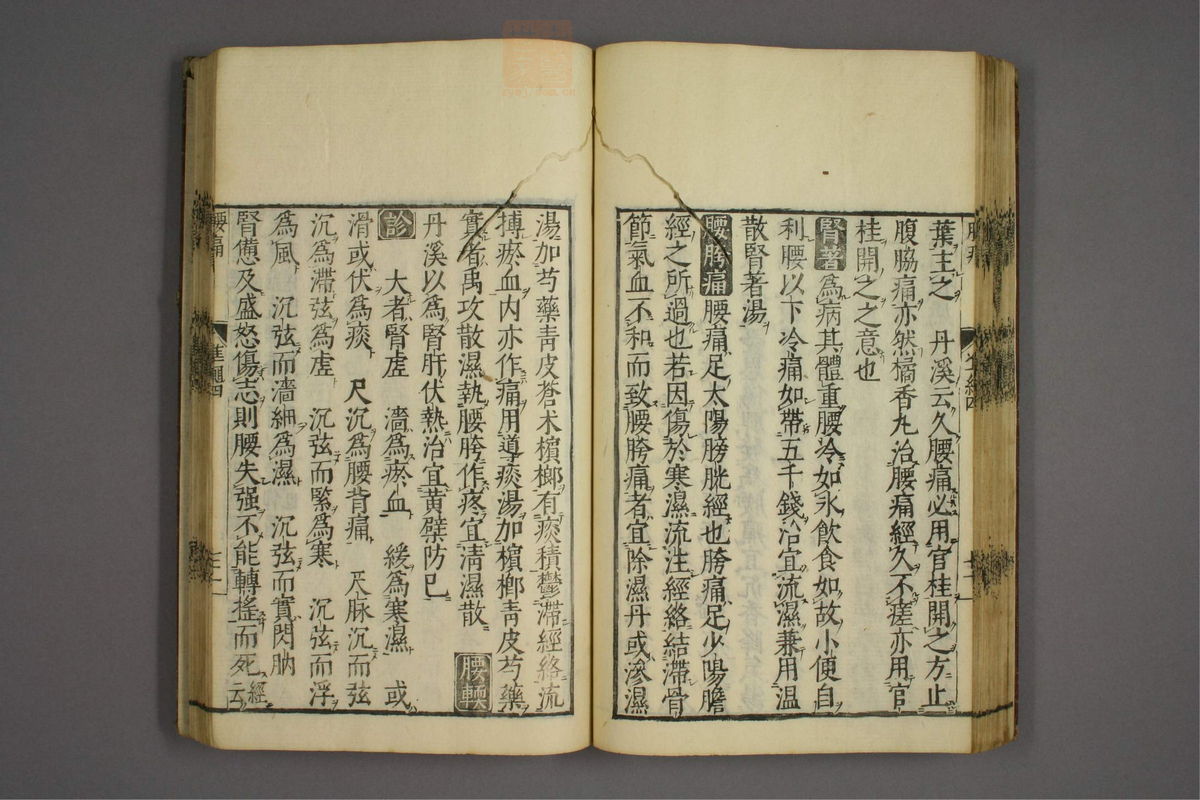 葉主之　丹溪云久腰痛必用官桂開之方止
腹脇痛亦然橘香丸治腰痛經久不瘥亦用官
桂開之之意也
腎著爲病其體重腰冷如氷飲食如故小便自
利腰以下冷痛如帶五千錢治宜流濕兼用溫
散腎著湯
腰胯痛腰痛足太陽膀胱經也胯痛足少陽膽
經之所過也若因傷於寒濕流注經絡結滯骨
節氣血不和而致腰胯痛者宜除濕丹或滲濕
湯加芍藥靑皮蒼朮檳榔有痰積鬱滯經絡流
搏瘀血内亦作痛用導痰湯加檳榔靑皮芍藥
實者禹攻散濕熱腰胯作疼宜淸濕散　腰輭
丹溪以爲腎肝伏熱治宜黃檗防已
診　大者腎虛　濇爲瘀血　緩爲寒濕　或
滑或伏爲痰　尺沉爲腰背痛　尺脉沉而弦
沉爲滯弦爲虛　沉弦而緊爲寒　沉弦而浮
爲風　沉弦而濇細爲濕　沉弦而實閃肭
腎憊及盛怒傷志則腰失强不能轉搖而死經云
腰痛